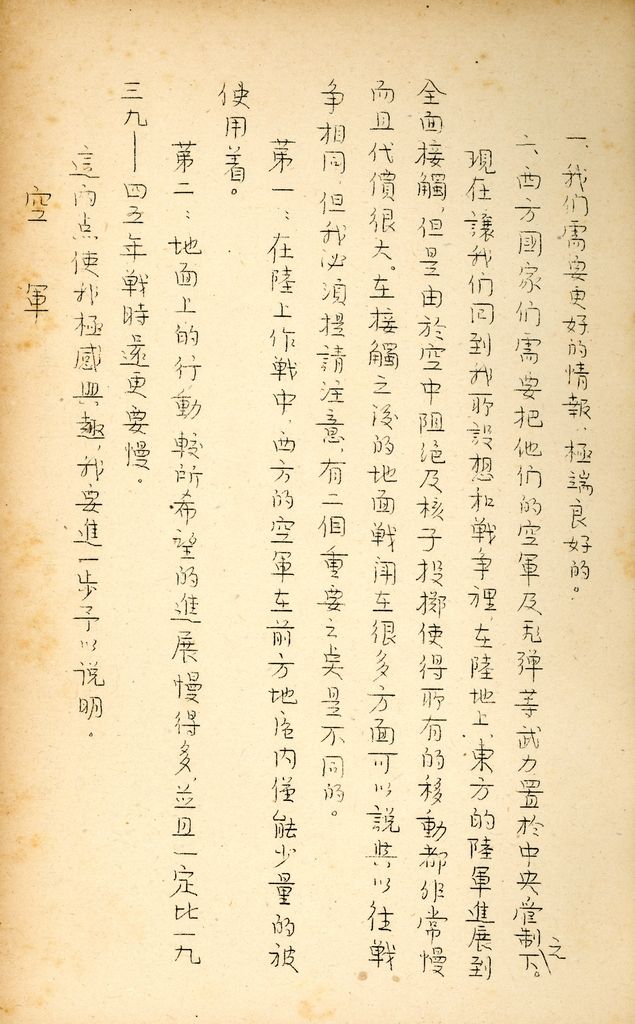 一、我们需要更好的情報、極端良好的。
六、西方國家们需要把他们的空軍及飛弹等武力置於中央管制之下。
現在讓我们回到我所設想和戦争裡,在陸地上,東方的陸軍進展到
全面接觸,但是由於空中阻绝及核子投擲使得所有的移動都非常慢
而且代價很大。在接觸之後的地面戦闘在很多方面可以說與以往戰
争相同,但我必須提請注意,有二個重要之点是不同的。
第一:在陸上作戰中,西方的空軍在前方地區内僅能少量的被
使用着。
第二:地面上的行動較所希望的進展慢得多,並且一定比一九
三九—四五年戰時還更要慢。
這两点使我極感興趣,我要進一步予以说明。
空軍